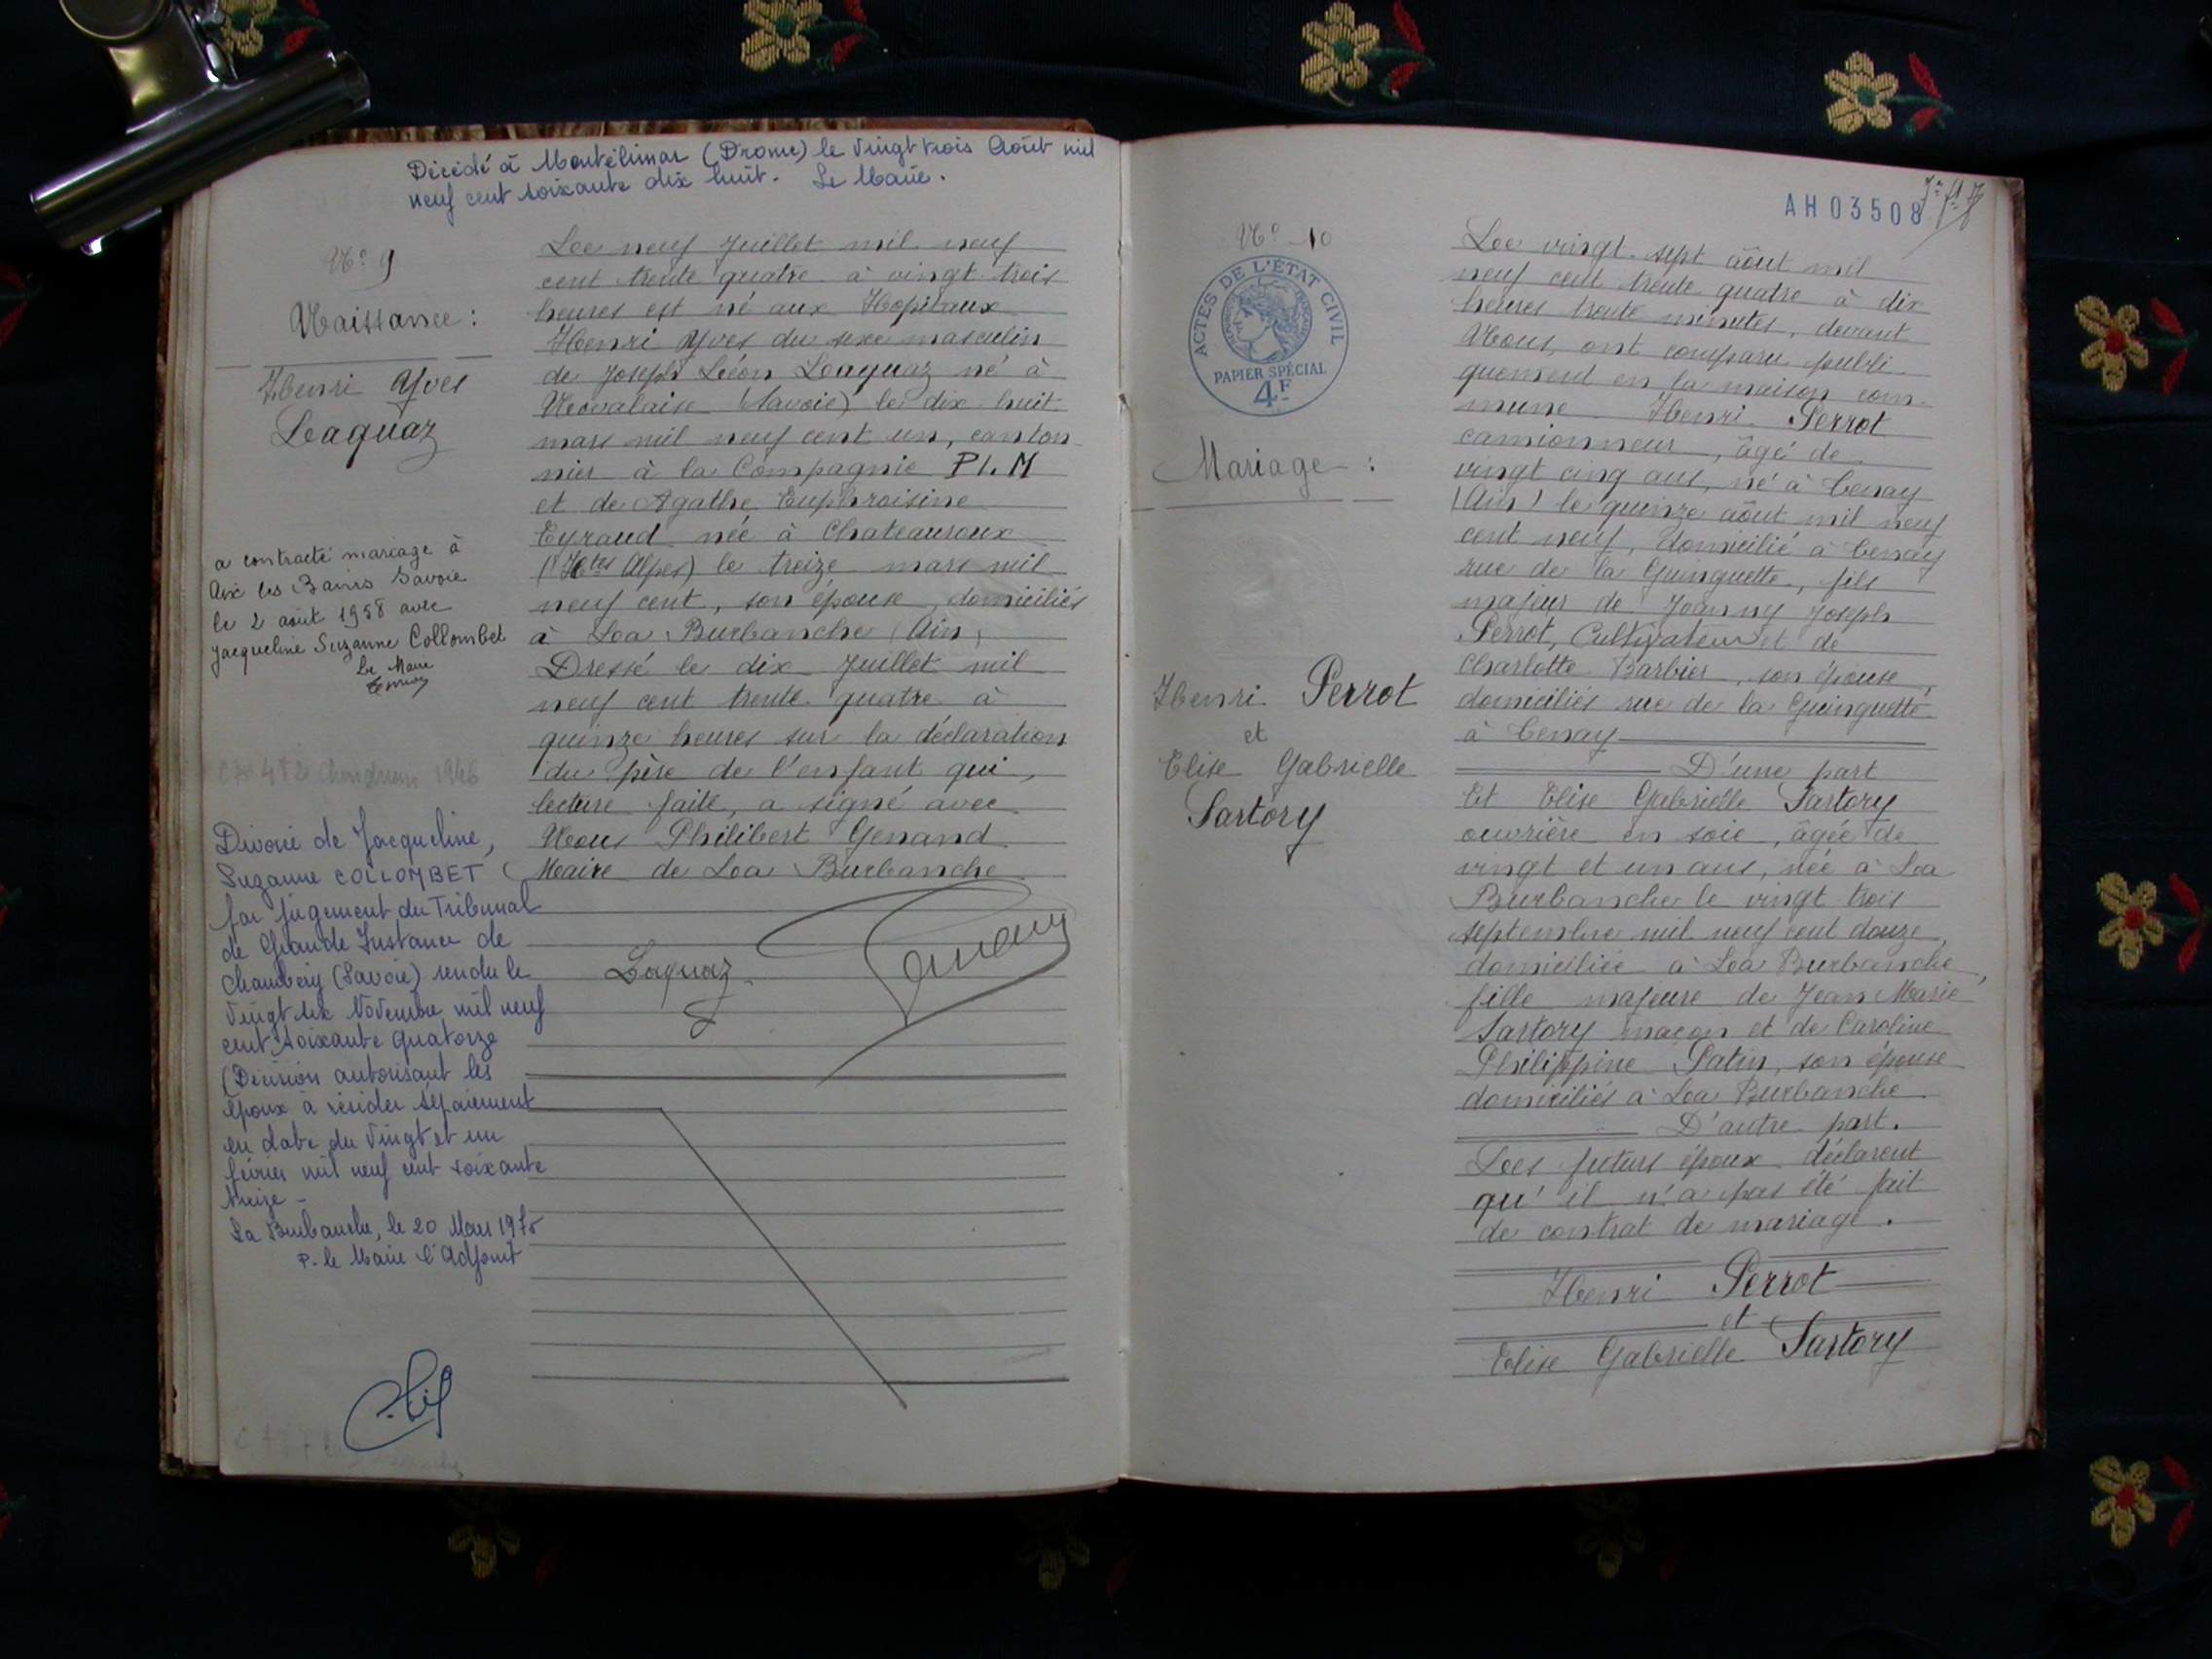 Décédé à Montélimar (Drome) le Vingt trois Août mil
neuf cent soixante dix huit. Le Maire.
No 9
Naissance :
Henri Yves
Laquaz
a contracté mariage à
Aix les Bains Savoie
le 2 août 1958 avec
Jacqueline Suzanne Collombet
Le Maire
Divorcé de Jacqueline,
Suzanne COLLOMBET
par jugement du Tribunal
de Grande Instance de
Chambéry (Savoie) rendu le
Vingt six Novembre mil neuf
cent soixante quatorze
(Décision autorisant les
époux à résider séparément
en date du Vingt et un
février mil neuf cent soixante
treize -
La Burbanche, le 20 Mars 1975
P. le Maire l'Adjoint
Le neuf Juillet mil neuf
cent trente quatre à vingt trois
heures est né aux Hopitaux
Henri Yves du sexe masculin
de Joseph Léon Laquaz né à
Novalaise (Savoie) le dix huit
mars mil neuf cent un, canton
nier à la Compagnie P.L.M
et de Agathe Euphroisine
Eyraud née à Chateauroux
(Htes Alpes) le treize mars mil
neuf cent, son épouse, domiciliés
à La Burbanche (Ain)
Dressé le dix Juillet mil
neuf cent trente quatre à
quinze heures sur la déclaration
du père de l'enfant qui,
lecture faite, a signé avec
Nous Philibert Genand
Maire de La Burbanche
Laquaz
Genand
AH03508
No 10
ACTES DE L'ÉTAT CIVIL
PAPIER SPÉCIAL
4F
Mariage :
Henri Perrot
et
Elise Gabrielle
Sartory
Le vingt sept août mil
neuf cent trente quatre à dix
heures trente minutes, devant
Nous, ont comparu publi
quement en la maison com-
mune Henri Perrot
camionneur, âgé de
vingt cinq ans, né à Tenay
(Ain) le quinze août mil neuf
cent neuf, domicilié à Tenay
rue de la Guinguette, fils
majeur de Joanny Joseph
Perrot, Cultivateur et de
Charlotte Barbier, son épouse,
domiciliés rue de la Guinguette
à Tenay
D'une part
Et Elise Gabrielle Sartory
ouvrière en soie, âgée de
vingt et un ans, née à La
Burbanche le vingt trois
septembre mil neuf cent douze,
domiciliée à La Burbanche,
fille majeure de Jean Marie
Sartory maçon et de Caroline
Philippine Patin, son épouse
domiciliés à La Burbanche
D'autre part.
Les futurs époux déclarent
qu'il n'a pas été fait
de contrat de mariage.
Henri Perrot
et
Elise Gabrielle Sartory